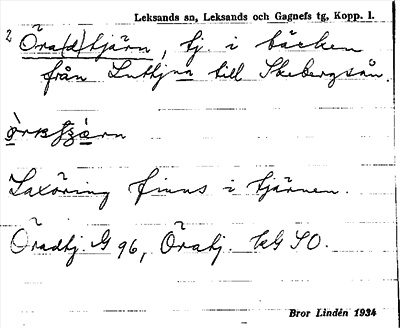 Leksands sn, Leksands och Gagnefs tg, Kopp. l.
2 Öra(d)tjärn, tj. i bäcken
från Luttjnn till Skebergsån.
Laxöring finns i tjärnen.
Öradtj. G 96, Öratj. kG SO.
Bror Lindén 1934